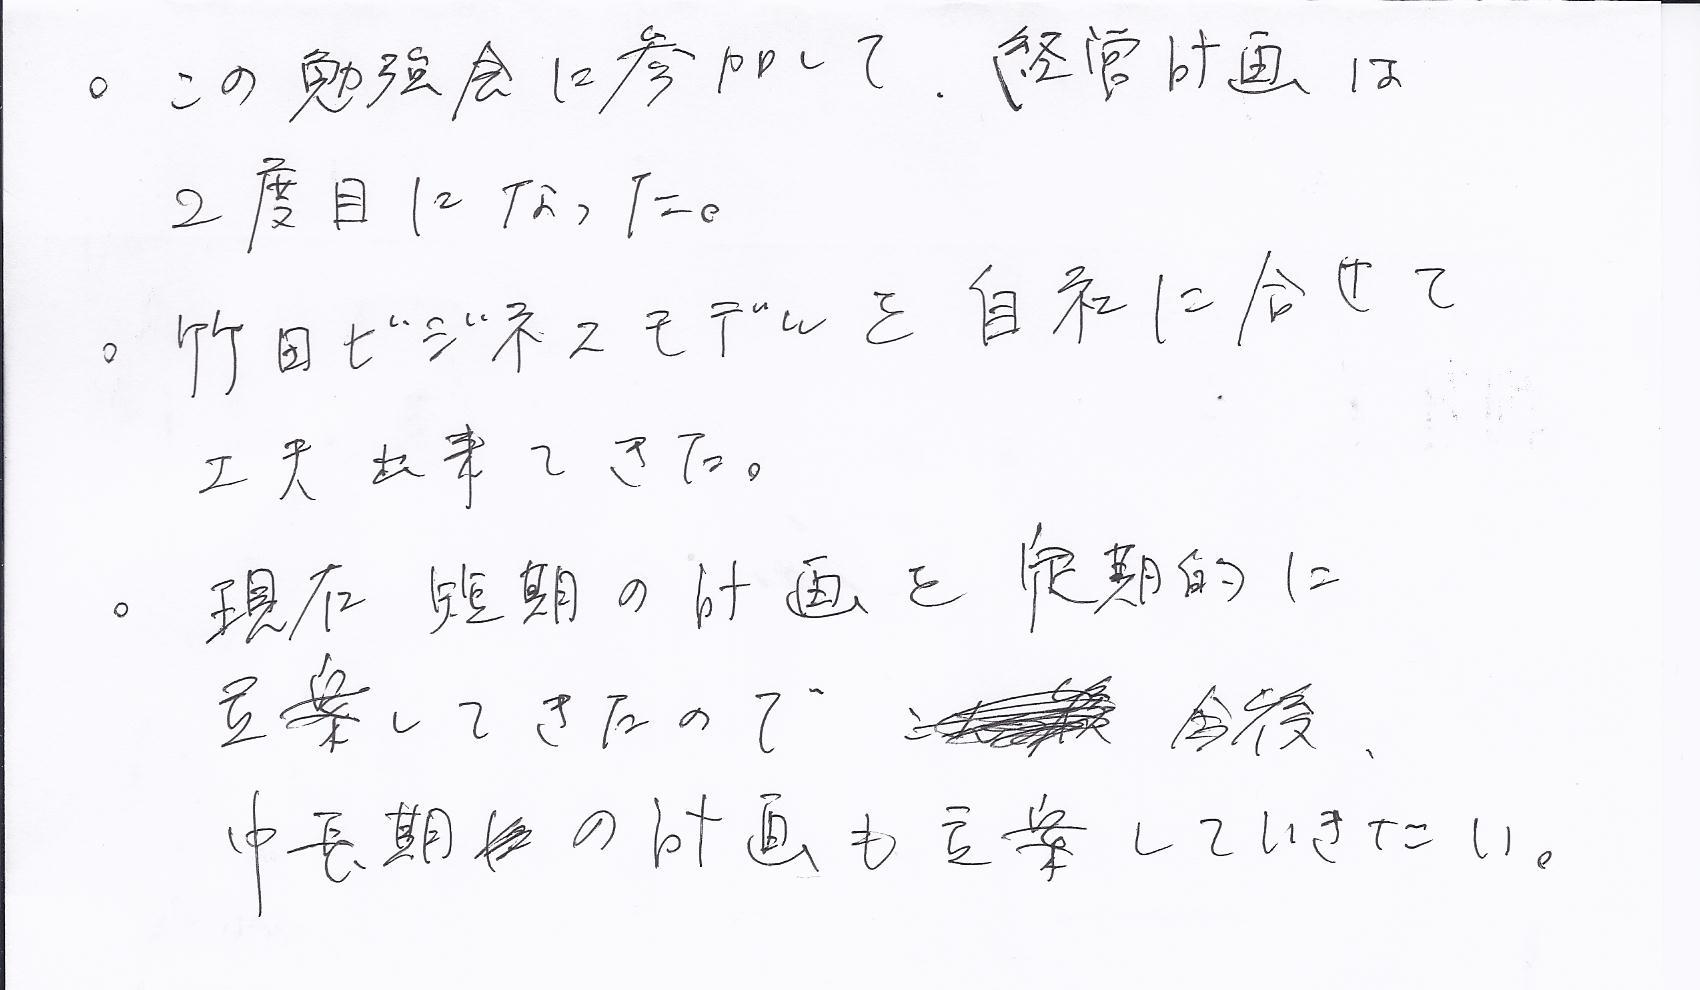 。この勉強会に参加して、経営計画は
2度目になった。
。竹田ビジネスモデルを自社に合せて
工夫出来てきた。
。現在短期の計画を定期的に
立案してきたので 今後、
中長期の計画も立案していきたい。